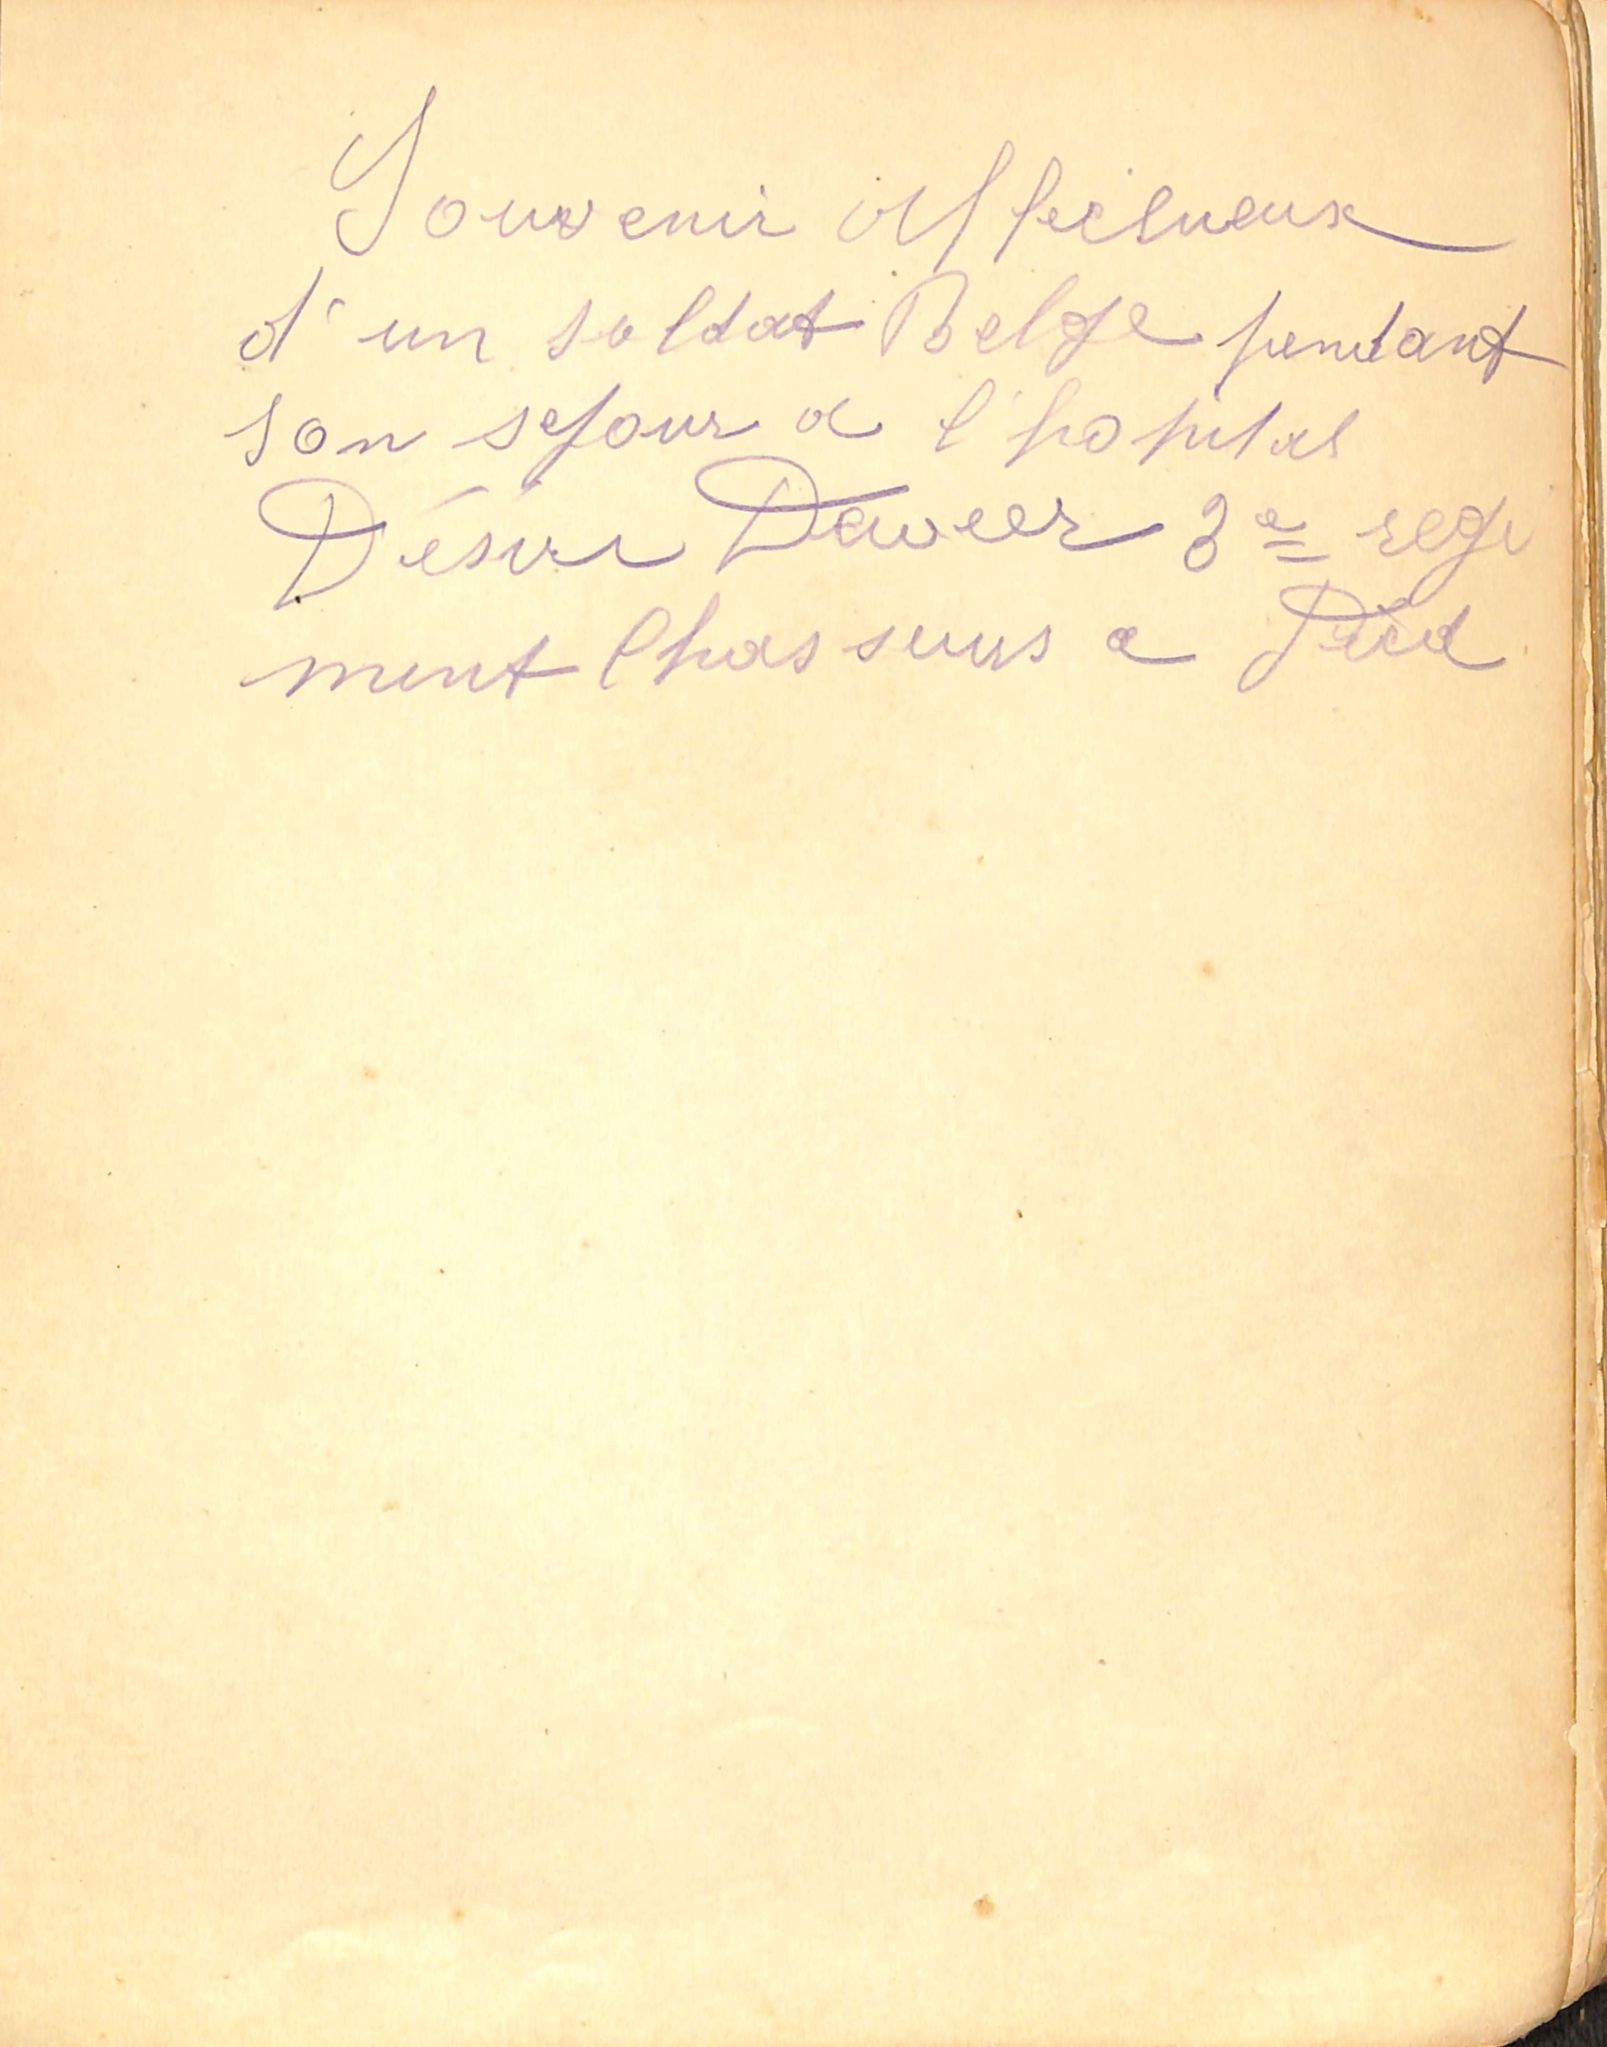 Souvenir affectueux
d'un soldat Belge pendant
son sejour a l'hopital
Désiré Deweer 3e regi
ment Chasseurs a Pied